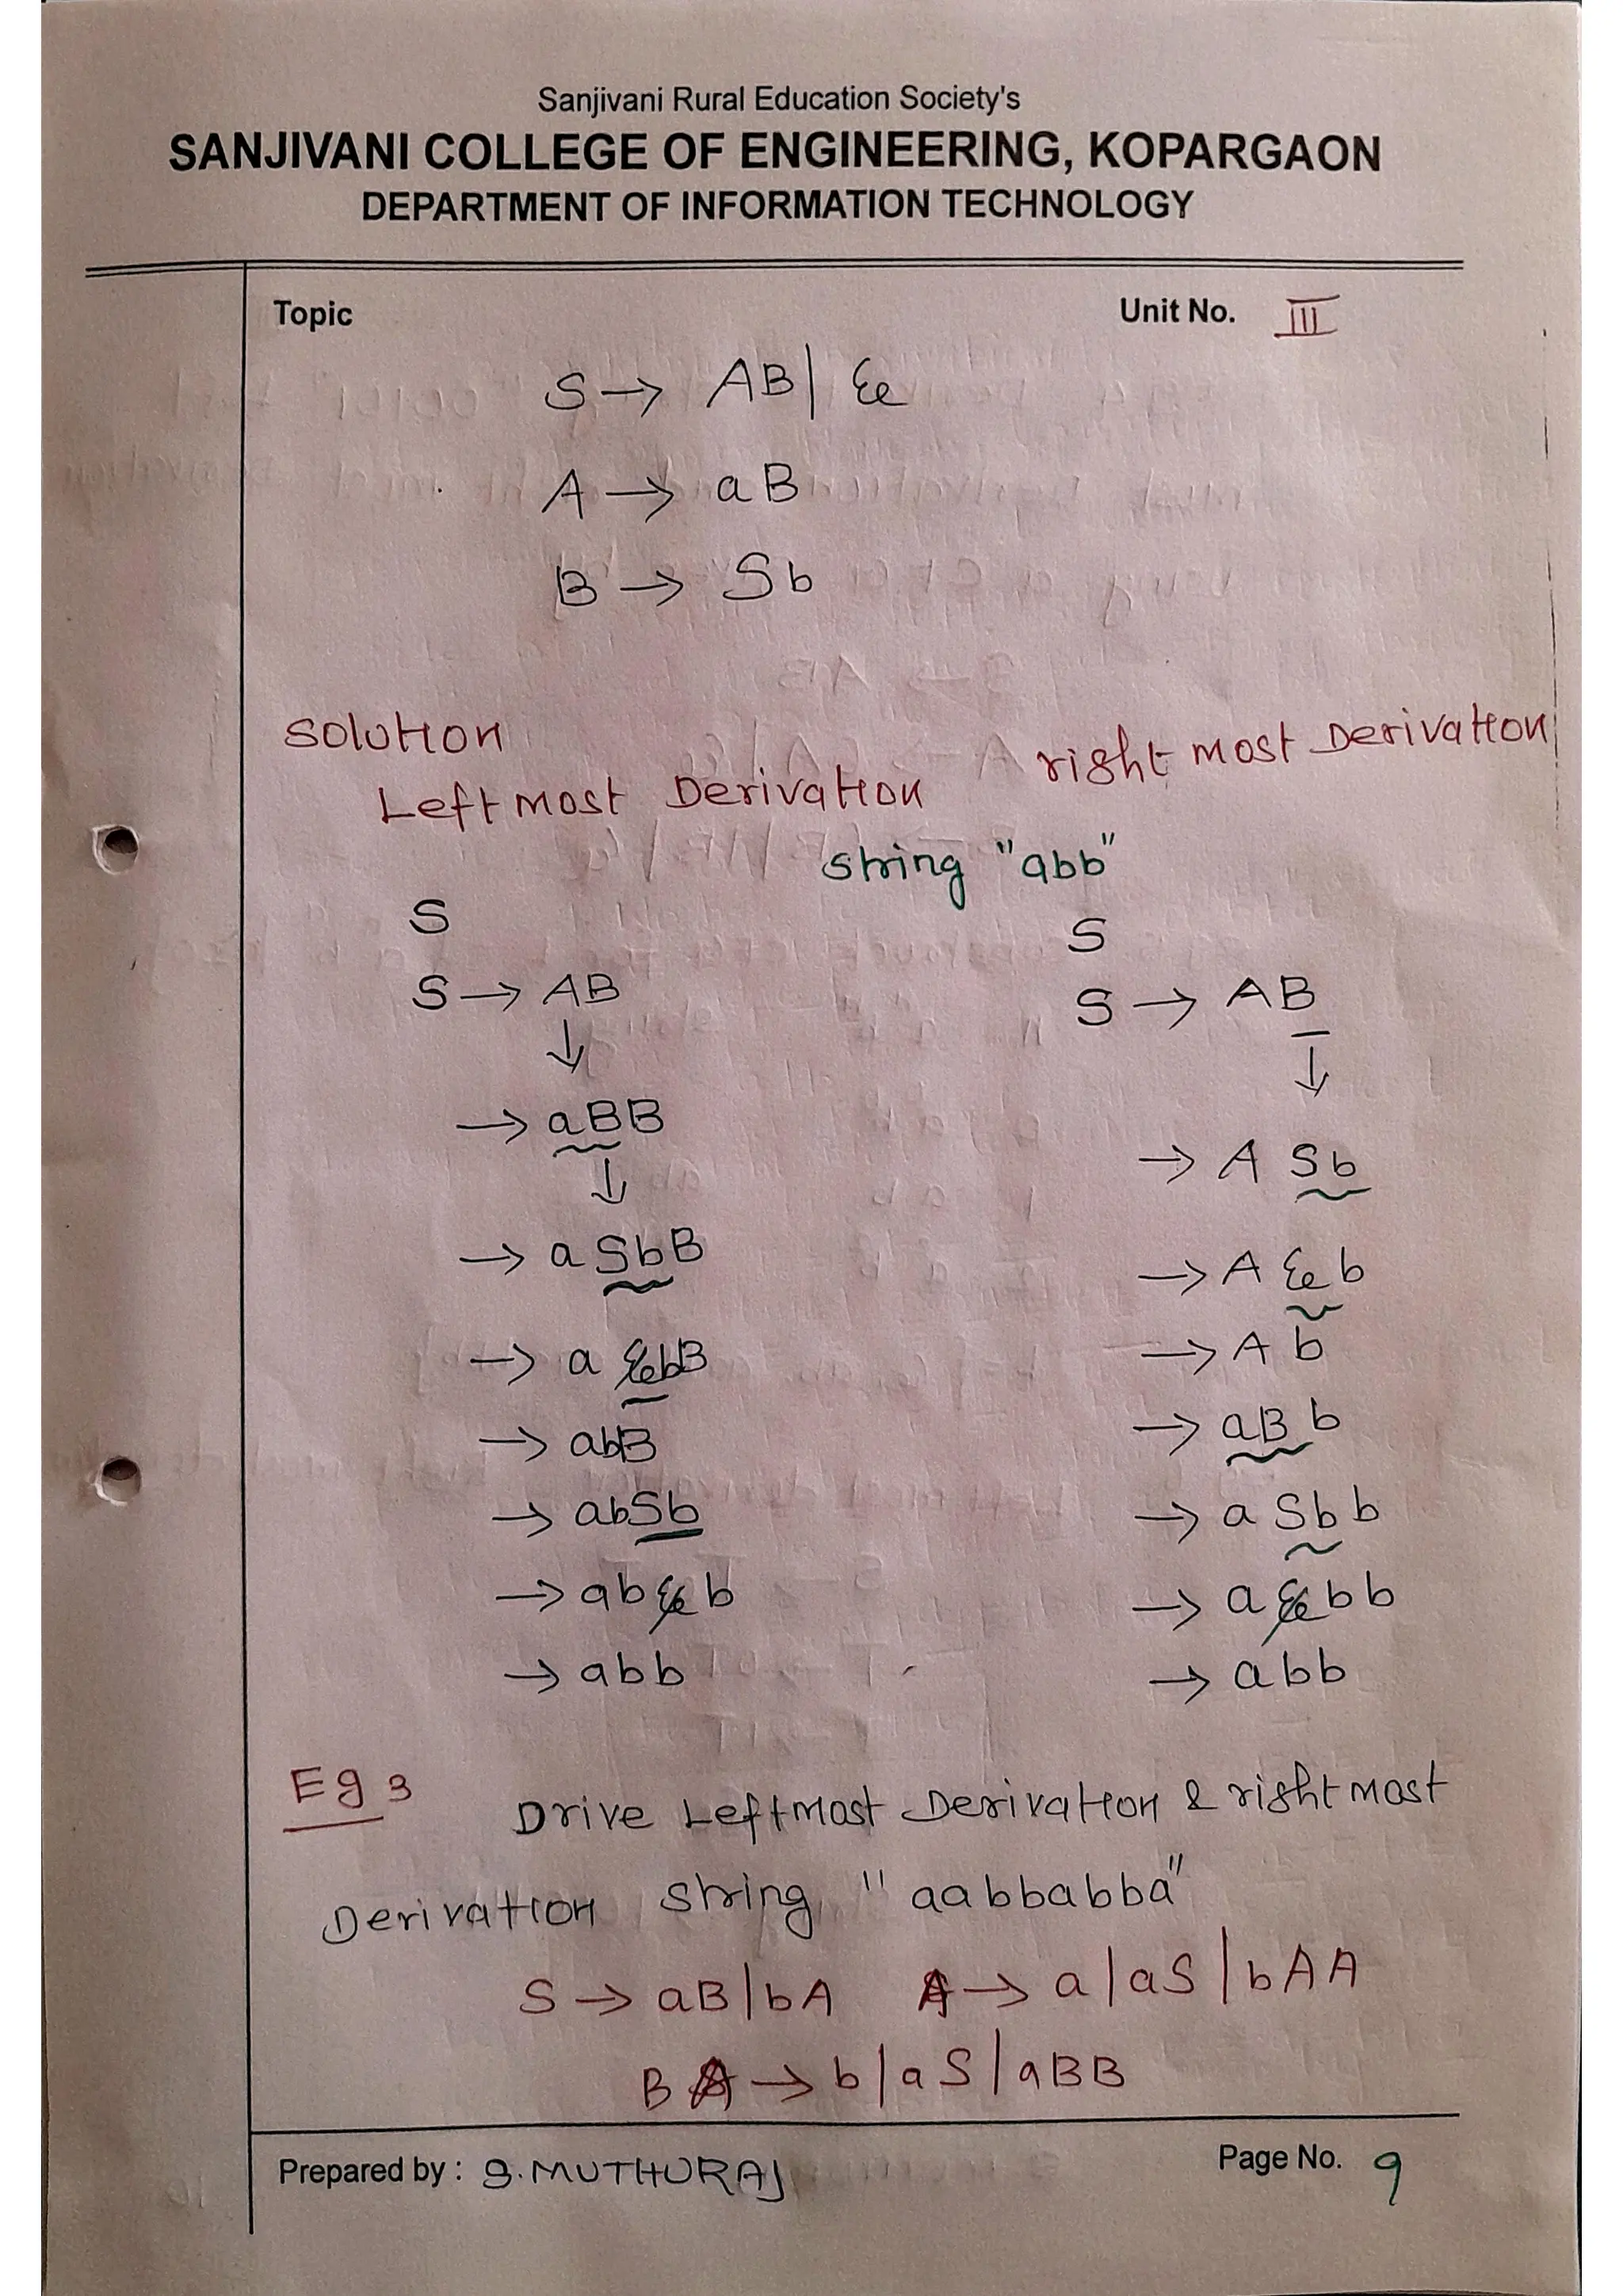 Sanjivani Rural Education Society's
SANJIVANI COLLEGE OF ENGINEERING, KOPARGAON
DEPARTMENT OF INFORMATION TECHNOLOGY
Topic
Unit No. III
S → AB | ε
A → aB
B → Sb
Solution
Leftmost Derivation
right most Derivation
string "abb"
S
S → AB
↓
→ aBB
↓
→ aSbB
→ a εbB
→ abB
→ abSb
→ abεb
→ abb
S
S → AB
↓
→ A Sb
→ A ε b
→ A b
→ aB b
→ a Sb b
→ a ε b b
→ abb
Eg 3
Drive Leftmost Derivation & rightmost
Derivation string "aabbabba"
S → aB | bA A → a | aS | bAA
B → b | aS | aBB
Prepared by : S. MUTHURAJ
Page No. 9